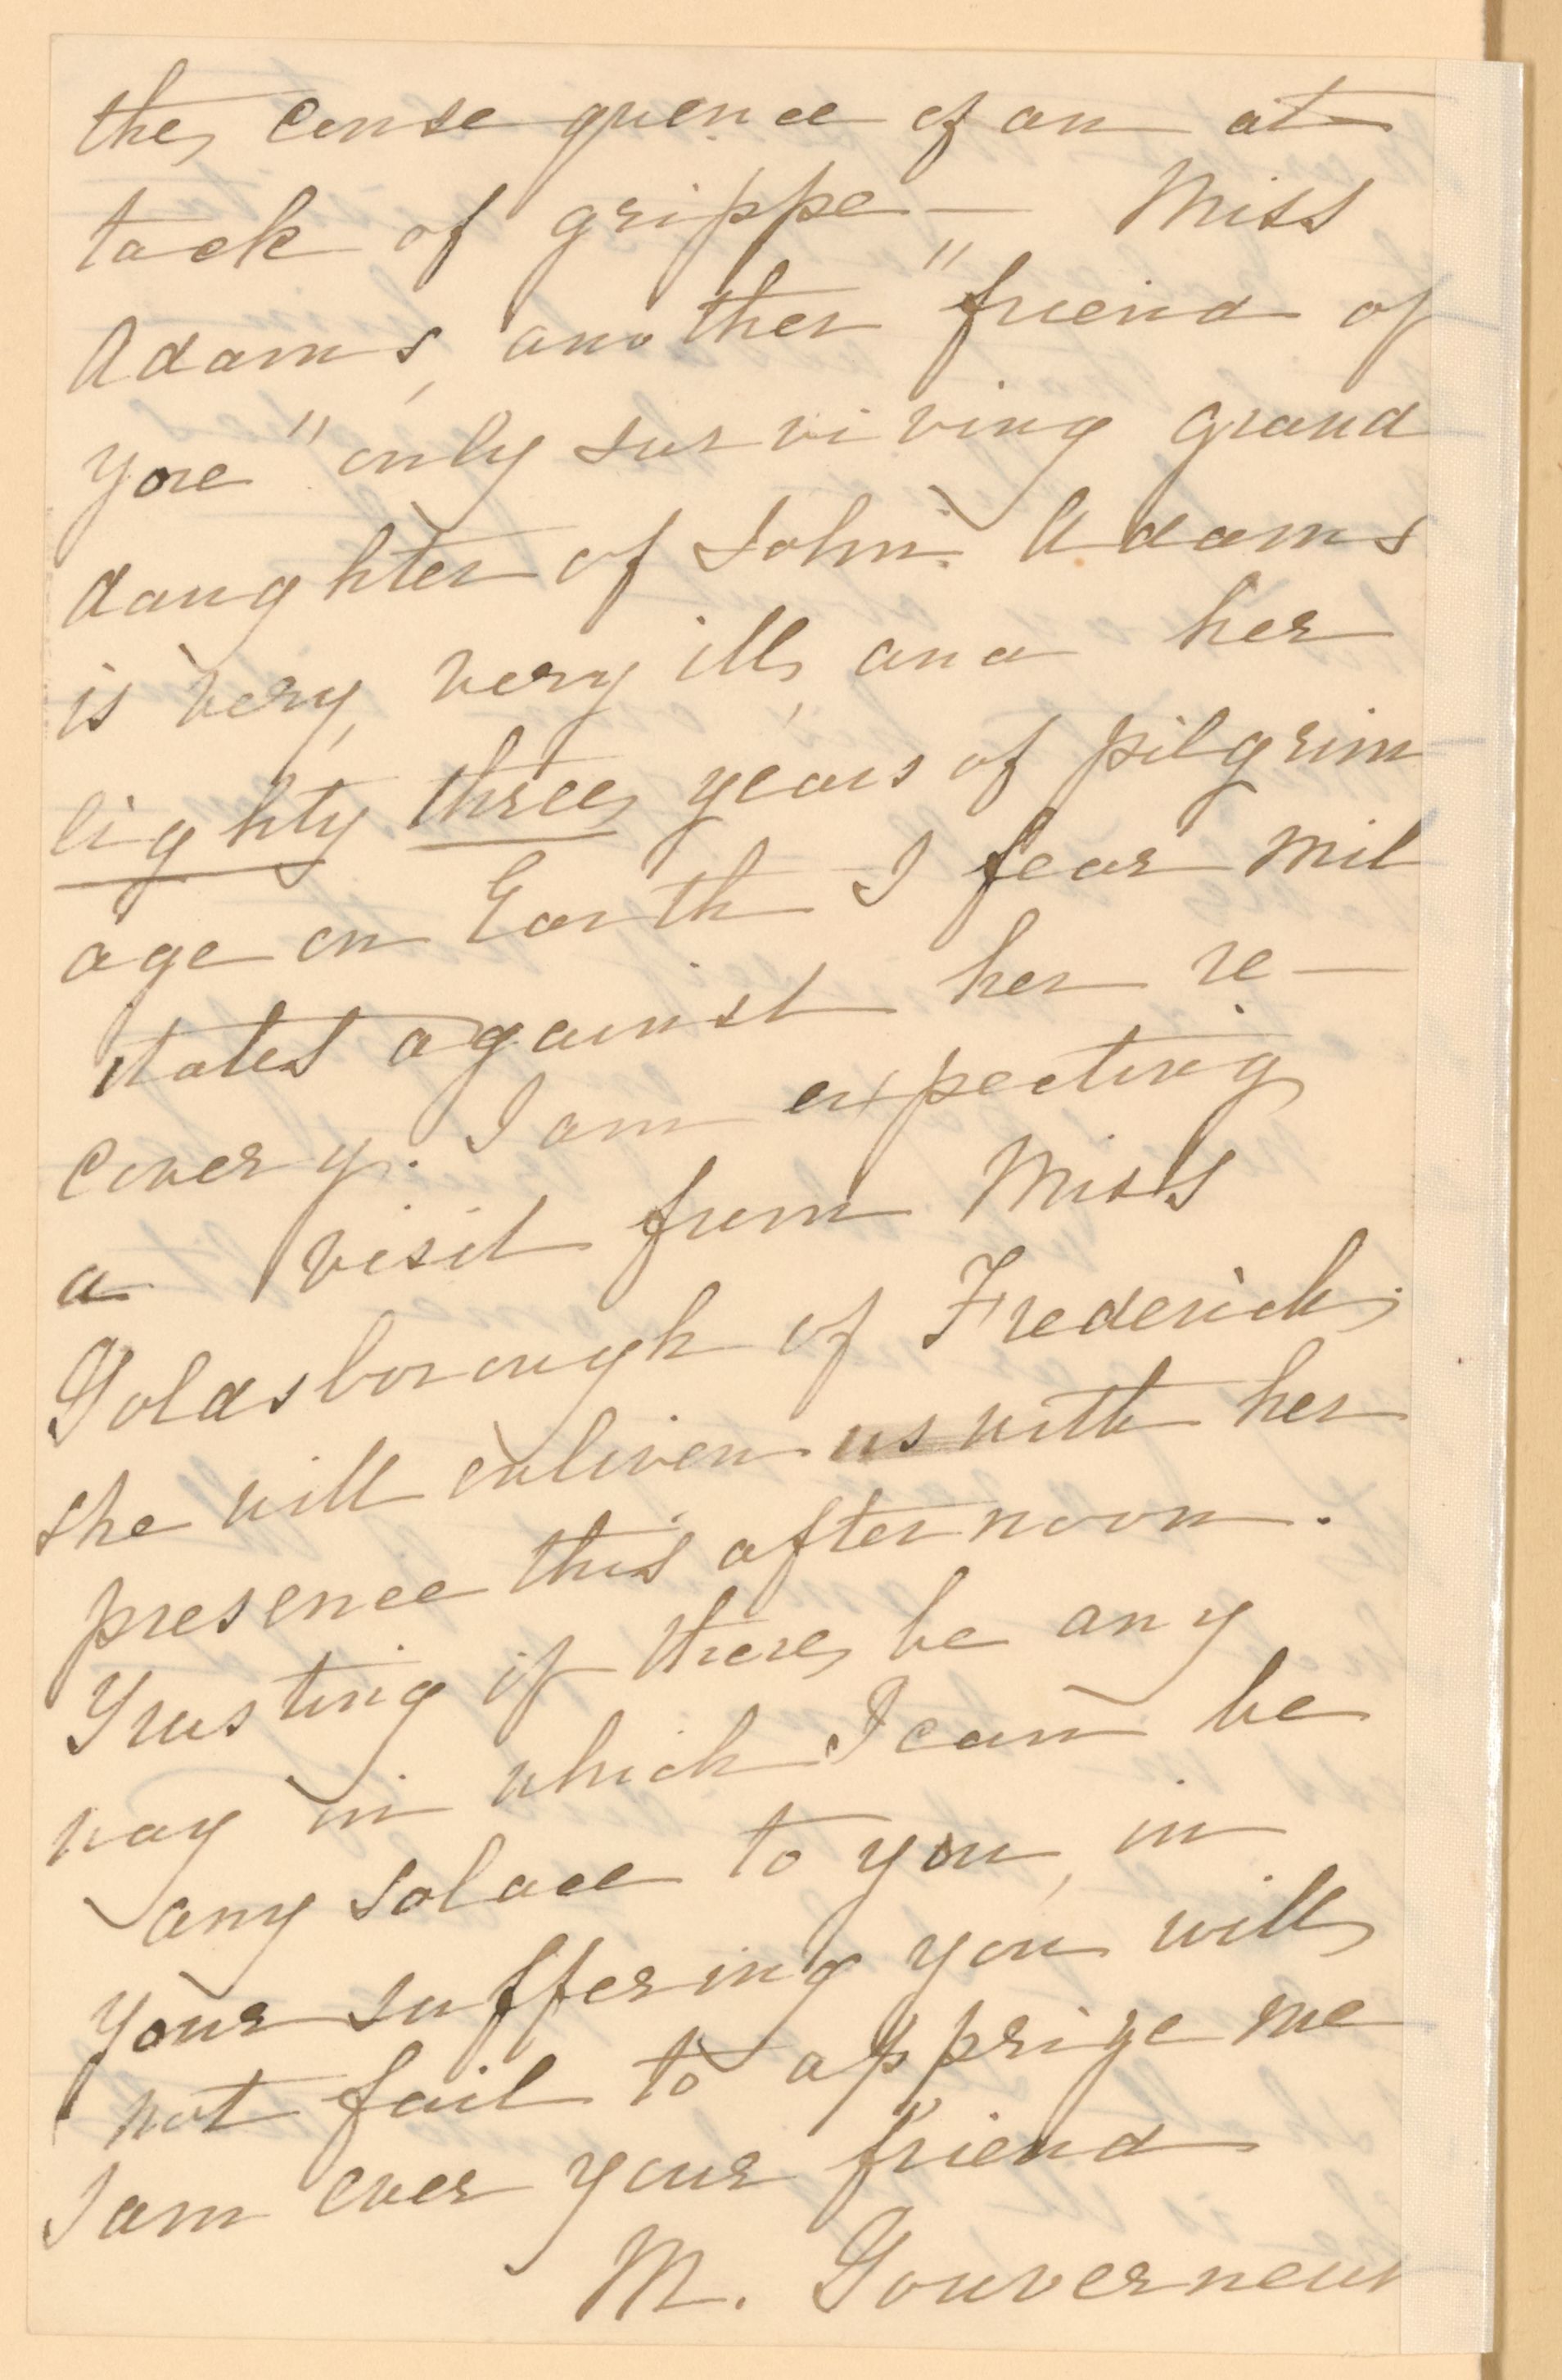 the consequence of an at
tack of grippe — Miss
Adams, another "friend of
yore" only surviving grand
daughter of John Adams
is very, very ill, and her
eighty three years of pilgrim
age on Earth I fear mil
itates against her re—
covery. I am expecting
a visit from Miss
Goldsborough of Frederick,
she will enliven us with her
presence this afternoon.
Trusting if there be any
way in which I can be
any solace to you, in
your suffering you will
not fail to apprize me
I am ever your friend
M. Gouverneur